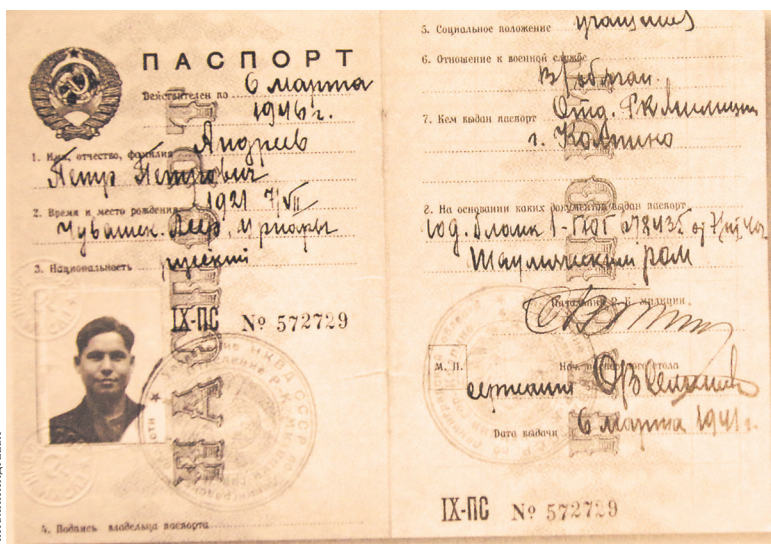 ПАСПОРТ
Действителен по 6 марта
1946 г.
Андреев
1. Имя, отчество, фамилия
Петр Петрович
1921 7/VII
2. Время и место рождения
Чувашск. АССР, Урмары
3. Национальность русский
IX-ПС № 572729
4. Подпись владельца паспорта
5. Социальное положение учащийся
6. Отношение к военной службе
В/обязан.
7. Кем выдан паспорт Отд. РКМилиции
г. Колпино
8. На основании каких документов выдан паспорт
год. бланк 1-ПЮГ 278435 от
Начальник Р. К. милиции
М. П.
Нач. паспортного стола
сержант
Дата выдачи 6 марта 1941 г.
IX-ПС № 572729